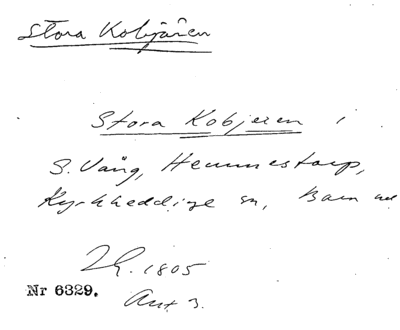 Stora Kobjären
Stora Kobjeren i
S. Vång, Hemmestorp,
Kyrkheddinge sn, Bara hd
1805
Nr 6329. Akt 3.